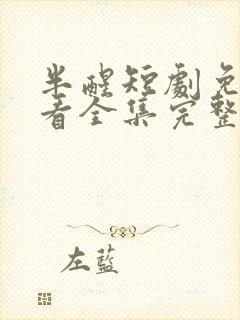 半醒短劇免
看全集完整
左藍